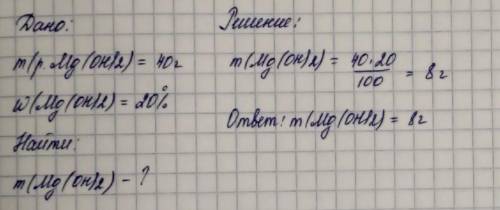 Дано:
m(р.Mg(OH)2) = 40г
W(Mg(OH)2) = 20%
Найти:
m(Mg(OH)2) - ?
Решение:
m(Mg(OH)2) = 40·20/100 = 8г
Ответ: m(Mg(OH)2) = 8г